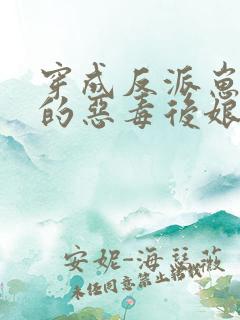 穿成反派崽
的惡毒後娘
安妮-海瑟薇
未经同意禁止搭载